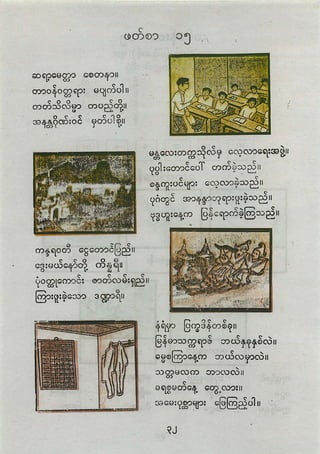 ဖတ်စာ ၁၅
ဆရာ့မေတ္တာ စေတနာ။
တာဝန်ဝတ္တရား မပျက်ပါ။
တတ်သိလိမ္မာ တပည့်တို့။
အနန္တဂိုဏ်းဝင် မှတ်ပါစို့။
မန္တလေးတက္ကသိုလ်မှ လေ့လာရေးအဖွဲ့။
ပုပ္ပါးတောင်ပေါ် တက်ခဲ့သည်။
စန္ဒကူးပင်များ လေ့လာခဲ့သည်။
ပုဂံတွင် အာနန္ဒာဘုရားဖူးခဲ့သည်။
ဗုဒ္ဓဟူးနေ့က ပြန်ရောက်ခဲ့ကြသည်။
ကန္ဒရဝတီ ငွေတောင်ပြည်။
ဒွေးမယ်နော်တို့ ကိန္နရီ။
ပုံဝတ္ထုကောင်း ဇာတ်လမ်းရှည်။
ကြားဖူးခဲ့သော ဒဏ္ဍာရီ။
နံရံမှာ ပြက္ခဒိန်တစ်ခု။
မြန်မာသက္ကရာဇ် ဘယ်နှခုနှစ်လဲ။
ဓမ္မစကြာနေ့က ဘယ်လမှာလဲ။
သတ္တမလက ဘာလလဲ။
မရဏ္ဍမတ်နေ့ တွေ့လား။
အမေးပုစ္ဆာများ ဖြေကြည့်ပါ။
၃၂